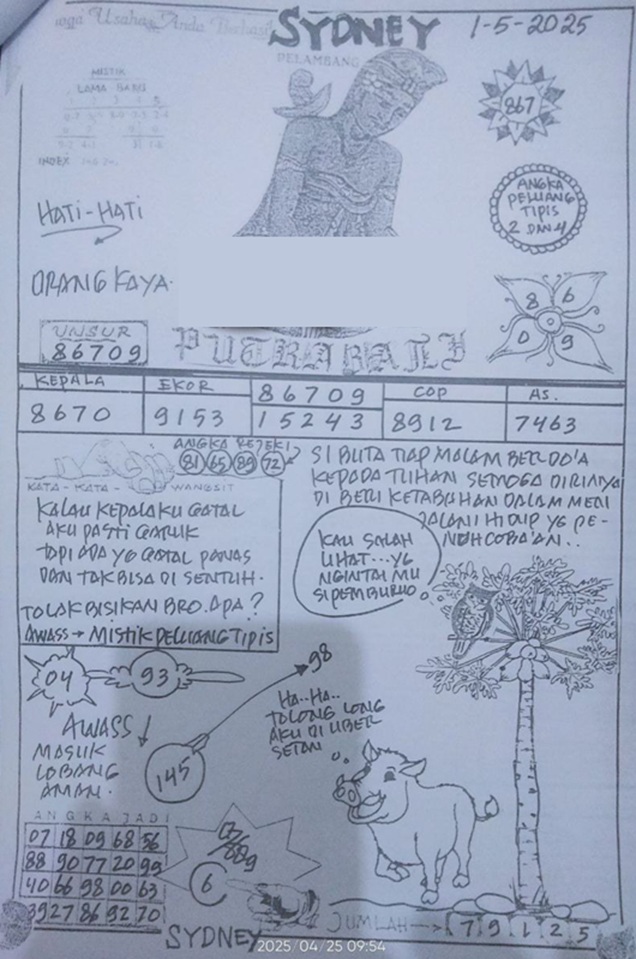 Usaha Anda Berhasil
SYDNEY
1-5-2025
PELAMBANG
MISTIK
LAMA BARU
INDEX
867
HATI-HATI
ANGKA
PELUANG
TIPIS
2 DAN 4
ORANG KAYA.
8 6
0 9
UNSUR
86709
PUTRA BALI
KEPALA EKOR 86709 COP AS.
8670 9153 15243 8912 7463
ANGKA REJEKI
81 65 89 72
KATA - KATA - WANGSIT
KALAU KEPALAKU GATAL
AKU PASTI GARUK
TAPI ADA YG GATAL PANAS
DAN TAK BISA DI SENTUH.
TOLAK BISIKAN BRO. APA?
AWASS → MISTIK PELUANG TIPIS
SI BUTA TIAP MALAM BERDO'A
KEPADA TUHAN SEMOGA DIRINYA
DI BERI KETABAHAN DALAM MENJ
JALANI HIDUP YG PE-
NUH COBA'AN..
KAU SALAH
LIHAT...YG
NGINTAI MU
SI PEMBURUO
04 93
98
HA..HA..
TOLONG LONG
AKU DI UBER
SETAN
AWASS
MASUK
LOBANG
AMAN.
145
ANGKA JADI
07 18 09 68 56
88 90 77 20 99
40 66 98 00 63
39 27 86 92 70
6
JUMLAH → 7 9 1 2 5
SYDNEY
2025/04/25 09:54